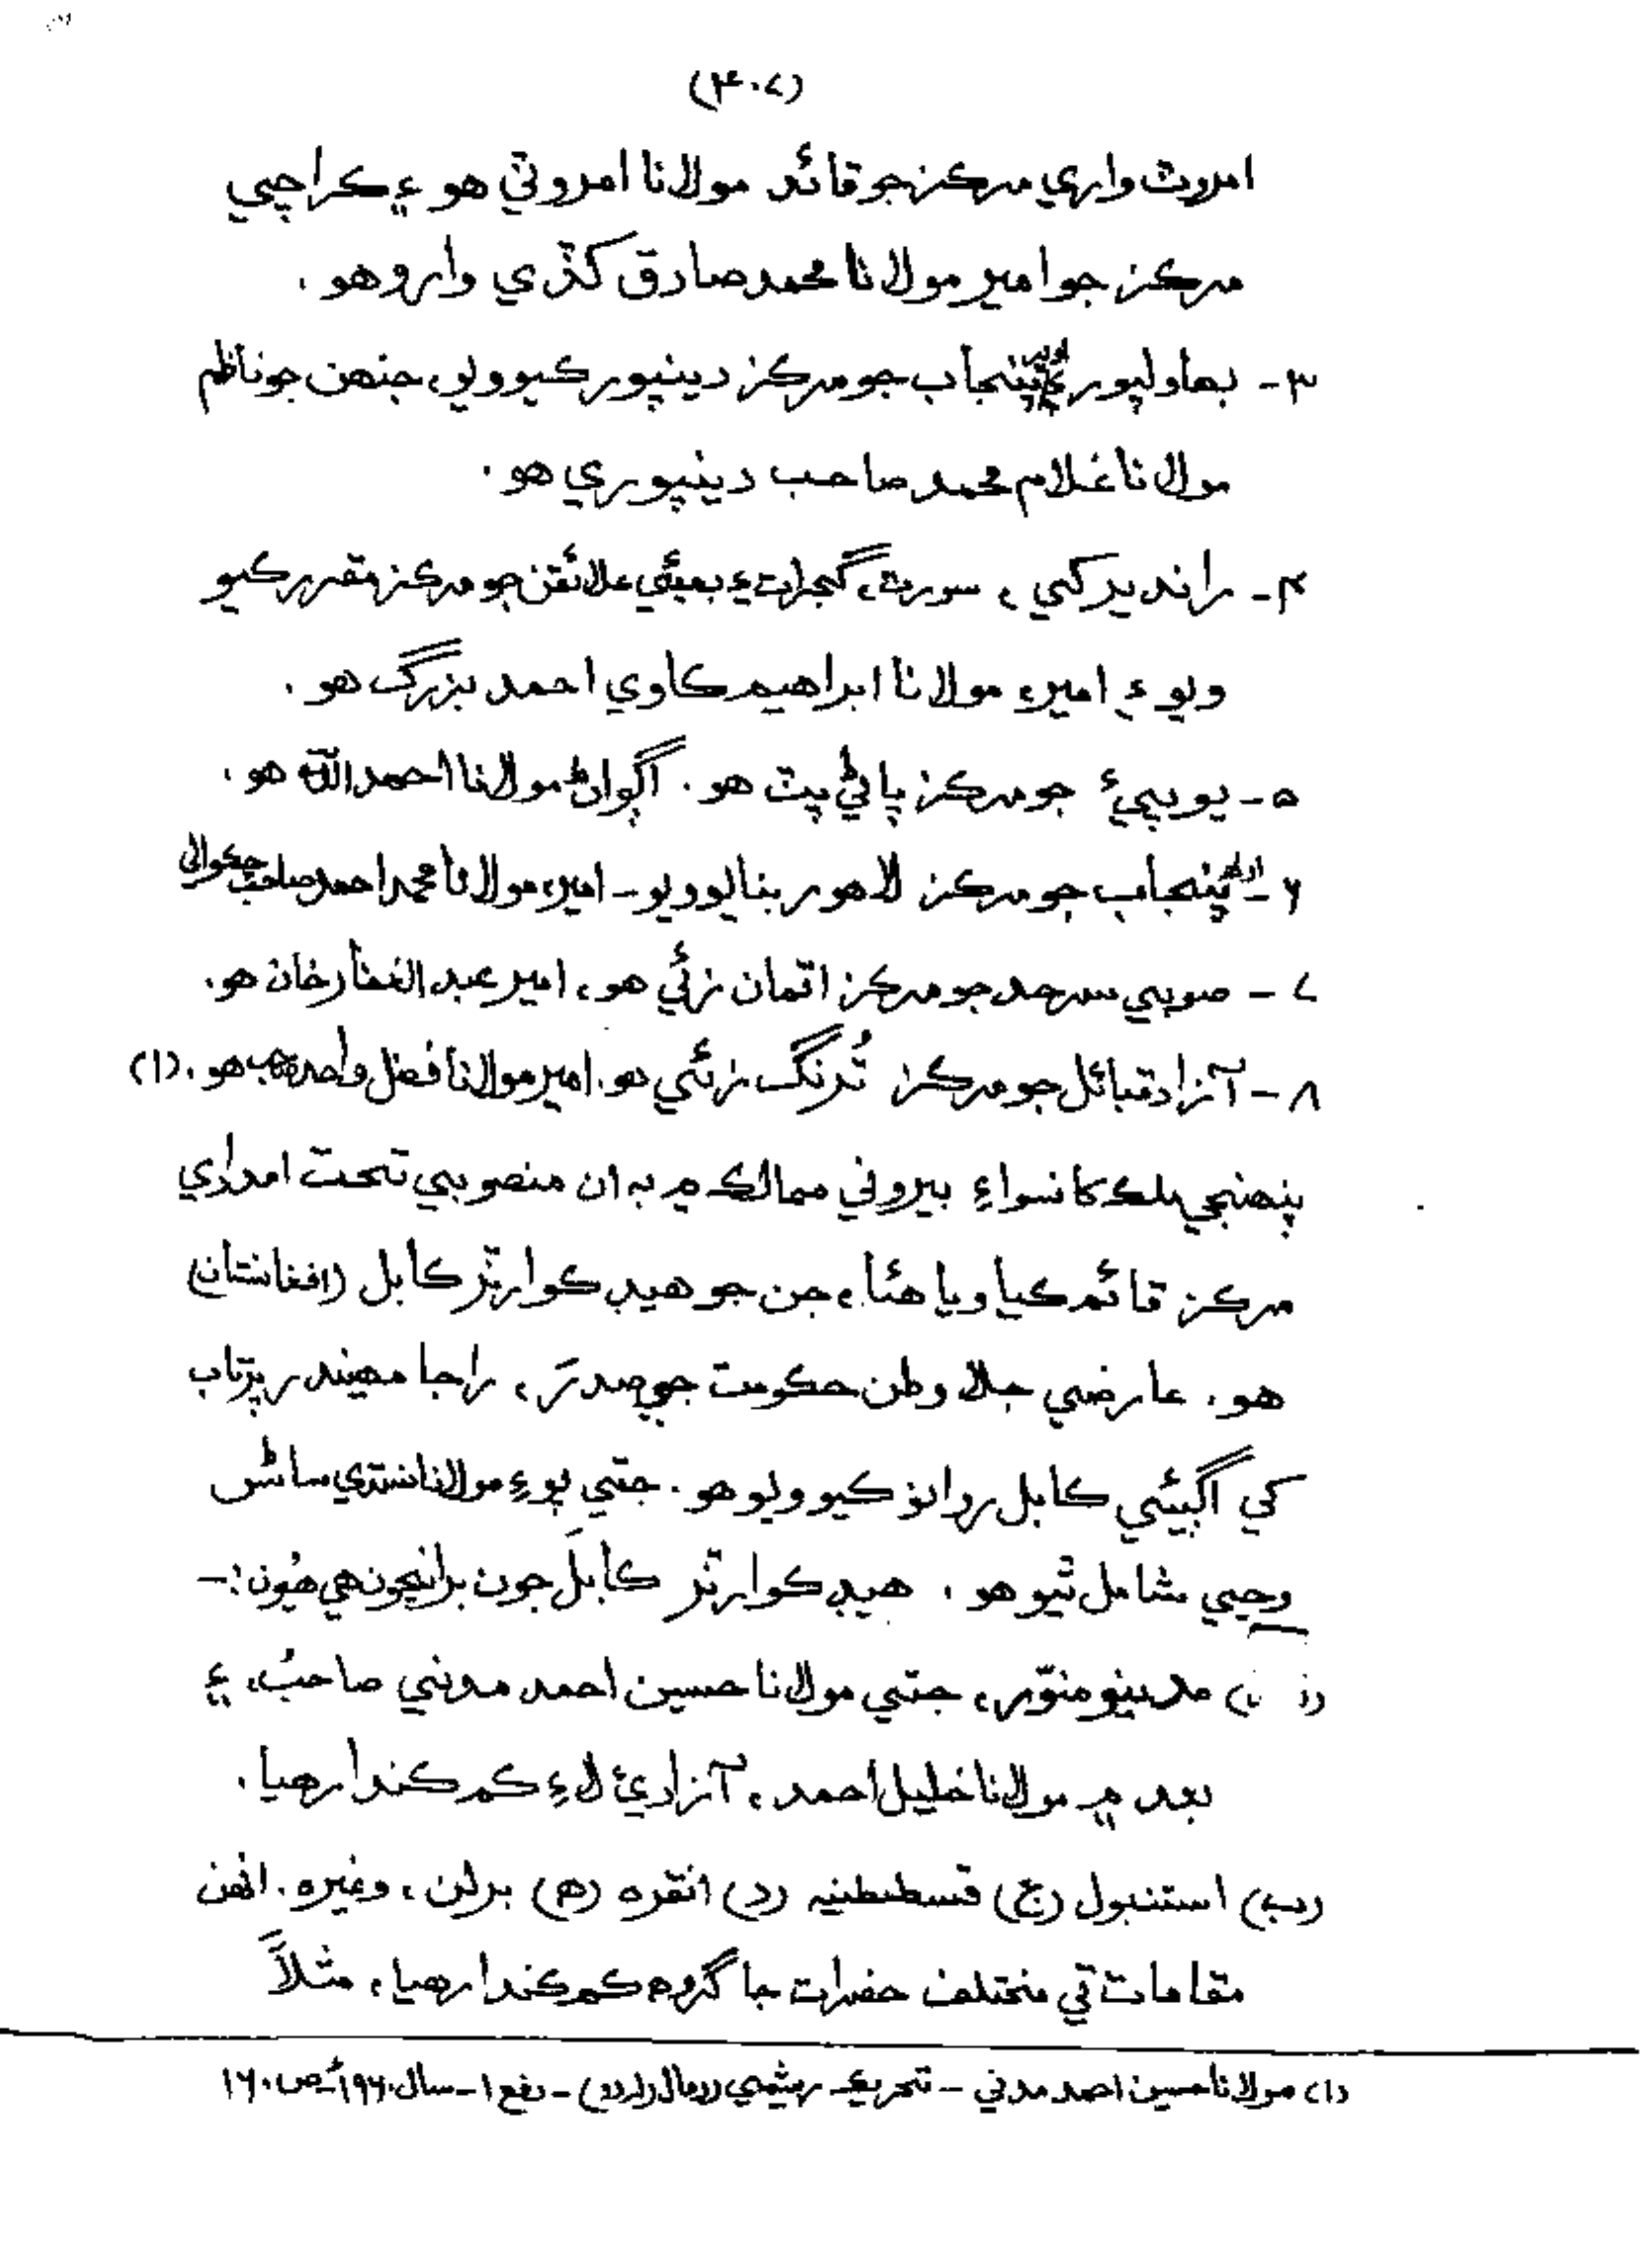 (۴۰۷)
امروٽ واري مرڪز جو قائد مولانا امروٽي هو ۽ ڪراچي
مرڪز جو امير مولانا محمد صادق کڏي وارو هو.
۳- بھاولپور ۽ پنجاب جو مرڪز دينپور ڪيو ويو، جنھن جو ناظم
مولانا غلام محمد صاحب دينپوري هو.
۴- رانديرکي، سورت، گجرات ۽ بمبئي علائقن جو مرڪز مقرر ڪيو
ويو ۽ امير، مولانا ابراهيم ڪاوي احمد بزرگ هو.
۵- يو پيءَ جو مرڪز پاڻي پت هو. اڳواڻ مولانا احمد الله هو.
۶- پنجاب جو مرڪز لاهور بنايو ويو- امير، مولانا محمد احمد صاحب چڪوالي
۷- صوبي سرحد جو مرڪز اتمان زئي هو، امير عبد الغفار خان هو.
۸- آزاد قبائل جو مرڪز تُرنگ زئي هو. امير مولانا فضل واحد صاحب هو. (۱)
پنھنجي ملڪ کانسواءِ بيروني ممالڪ ۾ به ان منصوبي تحت امدادي
مرڪز قائم ڪيا ويا هئا، جن جو هيڊ ڪوارٽر ڪابل (افغانستان)
هو. عارضي جلا وطن حڪومت جي صدرَ، راجا مھيندر پرتاب
کي اڳيئي ڪابل روانو ڪيو ويو هو. جتي پوءِ مولانا سنڌي ساڻس
وڃي شامل ٿيو هو. هيڊ ڪوارٽر ڪابلَ جون برانچون هي هُيون:-
( ) مدينو منوّر، جتي مولانا حسين احمد مدني صاحبُ، ۽
بعد ۾ مولانا خليل احمد، آزاديءَ لاءِ ڪم ڪندا رهيا.
(ب) استنبول (ج) قسطنطنيه (د) انقره (ھ) برلن، وغيره. انهن
مقامات تي مختلف حضرات جا گروه ڪم ڪندا رهيا، مثلاً
(۱) مولانا حسين احمد مدني - تحريڪ ريشمي رومال (اردو) - دفع ۱- سال ۱۹۶۰ع ص ۱۶۰